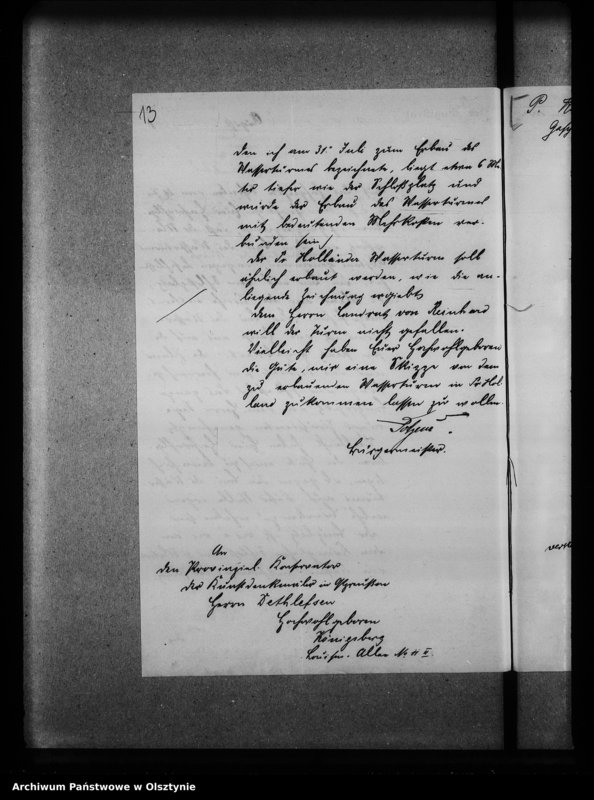 13
den ich am 31. Juli zum Erbau des
Wasserturmes bezeichnete, liegt etwa 6 Me-
ter tiefer wie der Schloßplatz und
würde der Erbau des Wasserturmes
mit bedeutenden Mehrkosten ver-
bunden sein.
Der Pr. Holländer Wasserturm soll
ähnlich erbaut werden, wie die an-
liegende Zeichnung ergiebt.
Dem Herrn Landrat von Reinhard
will der Turm nicht gefallen.
Vielleicht haben Euer Hochwohlgeboren
die Güte, mir eine Skizze von dem
zu erbauenden Wasserturm in Pr. Hol-
land zukommen lassen zu wollen.
Bürgermeister.
An
den Provinzial Konservator
der Kunstdenkmäler in Ostpreußen
Herrn Dethlefsen
Hochwohlgeboren
Königsberg
Luisen-Allee No
P.
Archiwum Państwowe w Olsztynie